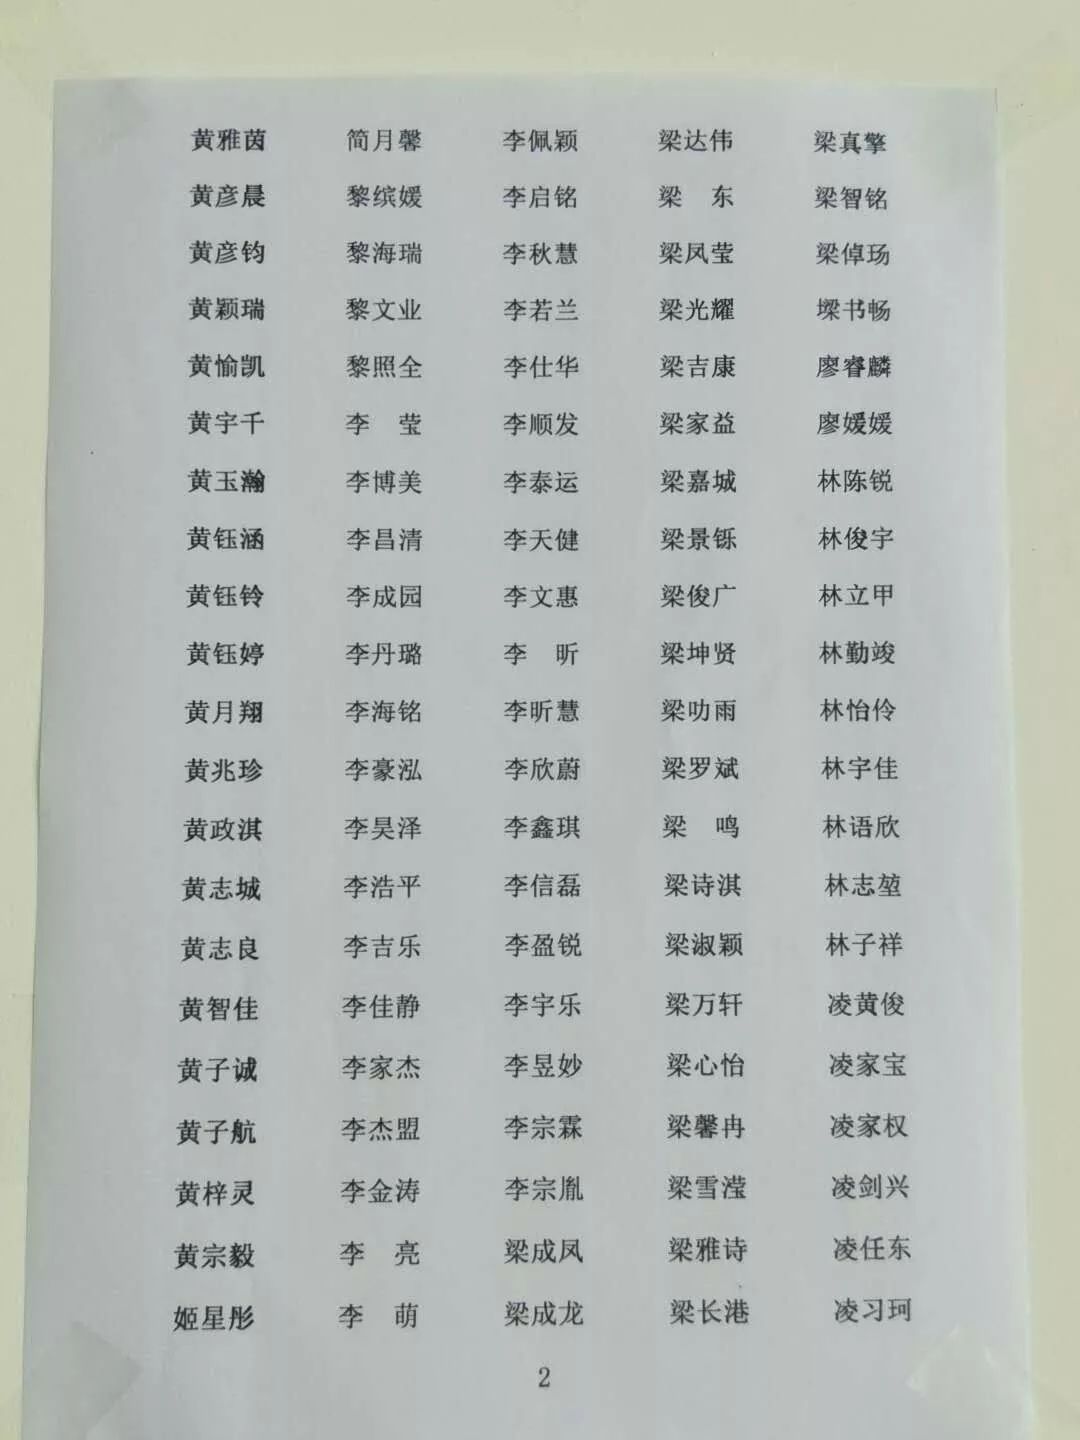 黄雅茵 简月馨 李佩颖 梁达伟 梁真擎
黄彦晨 黎缤媛 李启铭 梁　东 梁智铭
黄彦钧 黎海瑞 李秋慧 梁凤莹 梁倬玚
黄颖瑞 黎文业 李若兰 梁光耀 墚书畅
黄愉凯 黎照全 李仕华 梁吉康 廖睿麟
黄宇千 李　莹 李顺发 梁家益 廖媛媛
黄玉瀚 李博美 李泰运 梁嘉城 林陈锐
黄钰涵 李昌清 李天健 梁景铄 林俊宇
黄钰铃 李成园 李文惠 梁俊广 林立甲
黄钰婷 李丹璐 李　昕 梁坤贤 林勤竣
黄月翔 李海铭 李昕慧 梁叻雨 林怡伶
黄兆珍 李豪泓 李欣蔚 梁罗斌 林宇佳
黄政淇 李昊泽 李鑫琪 梁　鸣 林语欣
黄志城 李浩平 李信磊 梁诗淇 林志堃
黄志良 李吉乐 李盈锐 梁淑颖 林子祥
黄智佳 李佳静 李宇乐 梁万轩 凌黄俊
黄子诚 李家杰 李昱妙 梁心怡 凌家宝
黄子航 李杰盟 李宗霖 梁馨冉 凌家权
黄梓灵 李金涛 李宗胤 梁雪滢 凌剑兴
黄宗毅 李　亮 梁成凤 梁雅诗 凌任东
姬星彤 李　萌 梁成龙 梁长港 凌习珂
2